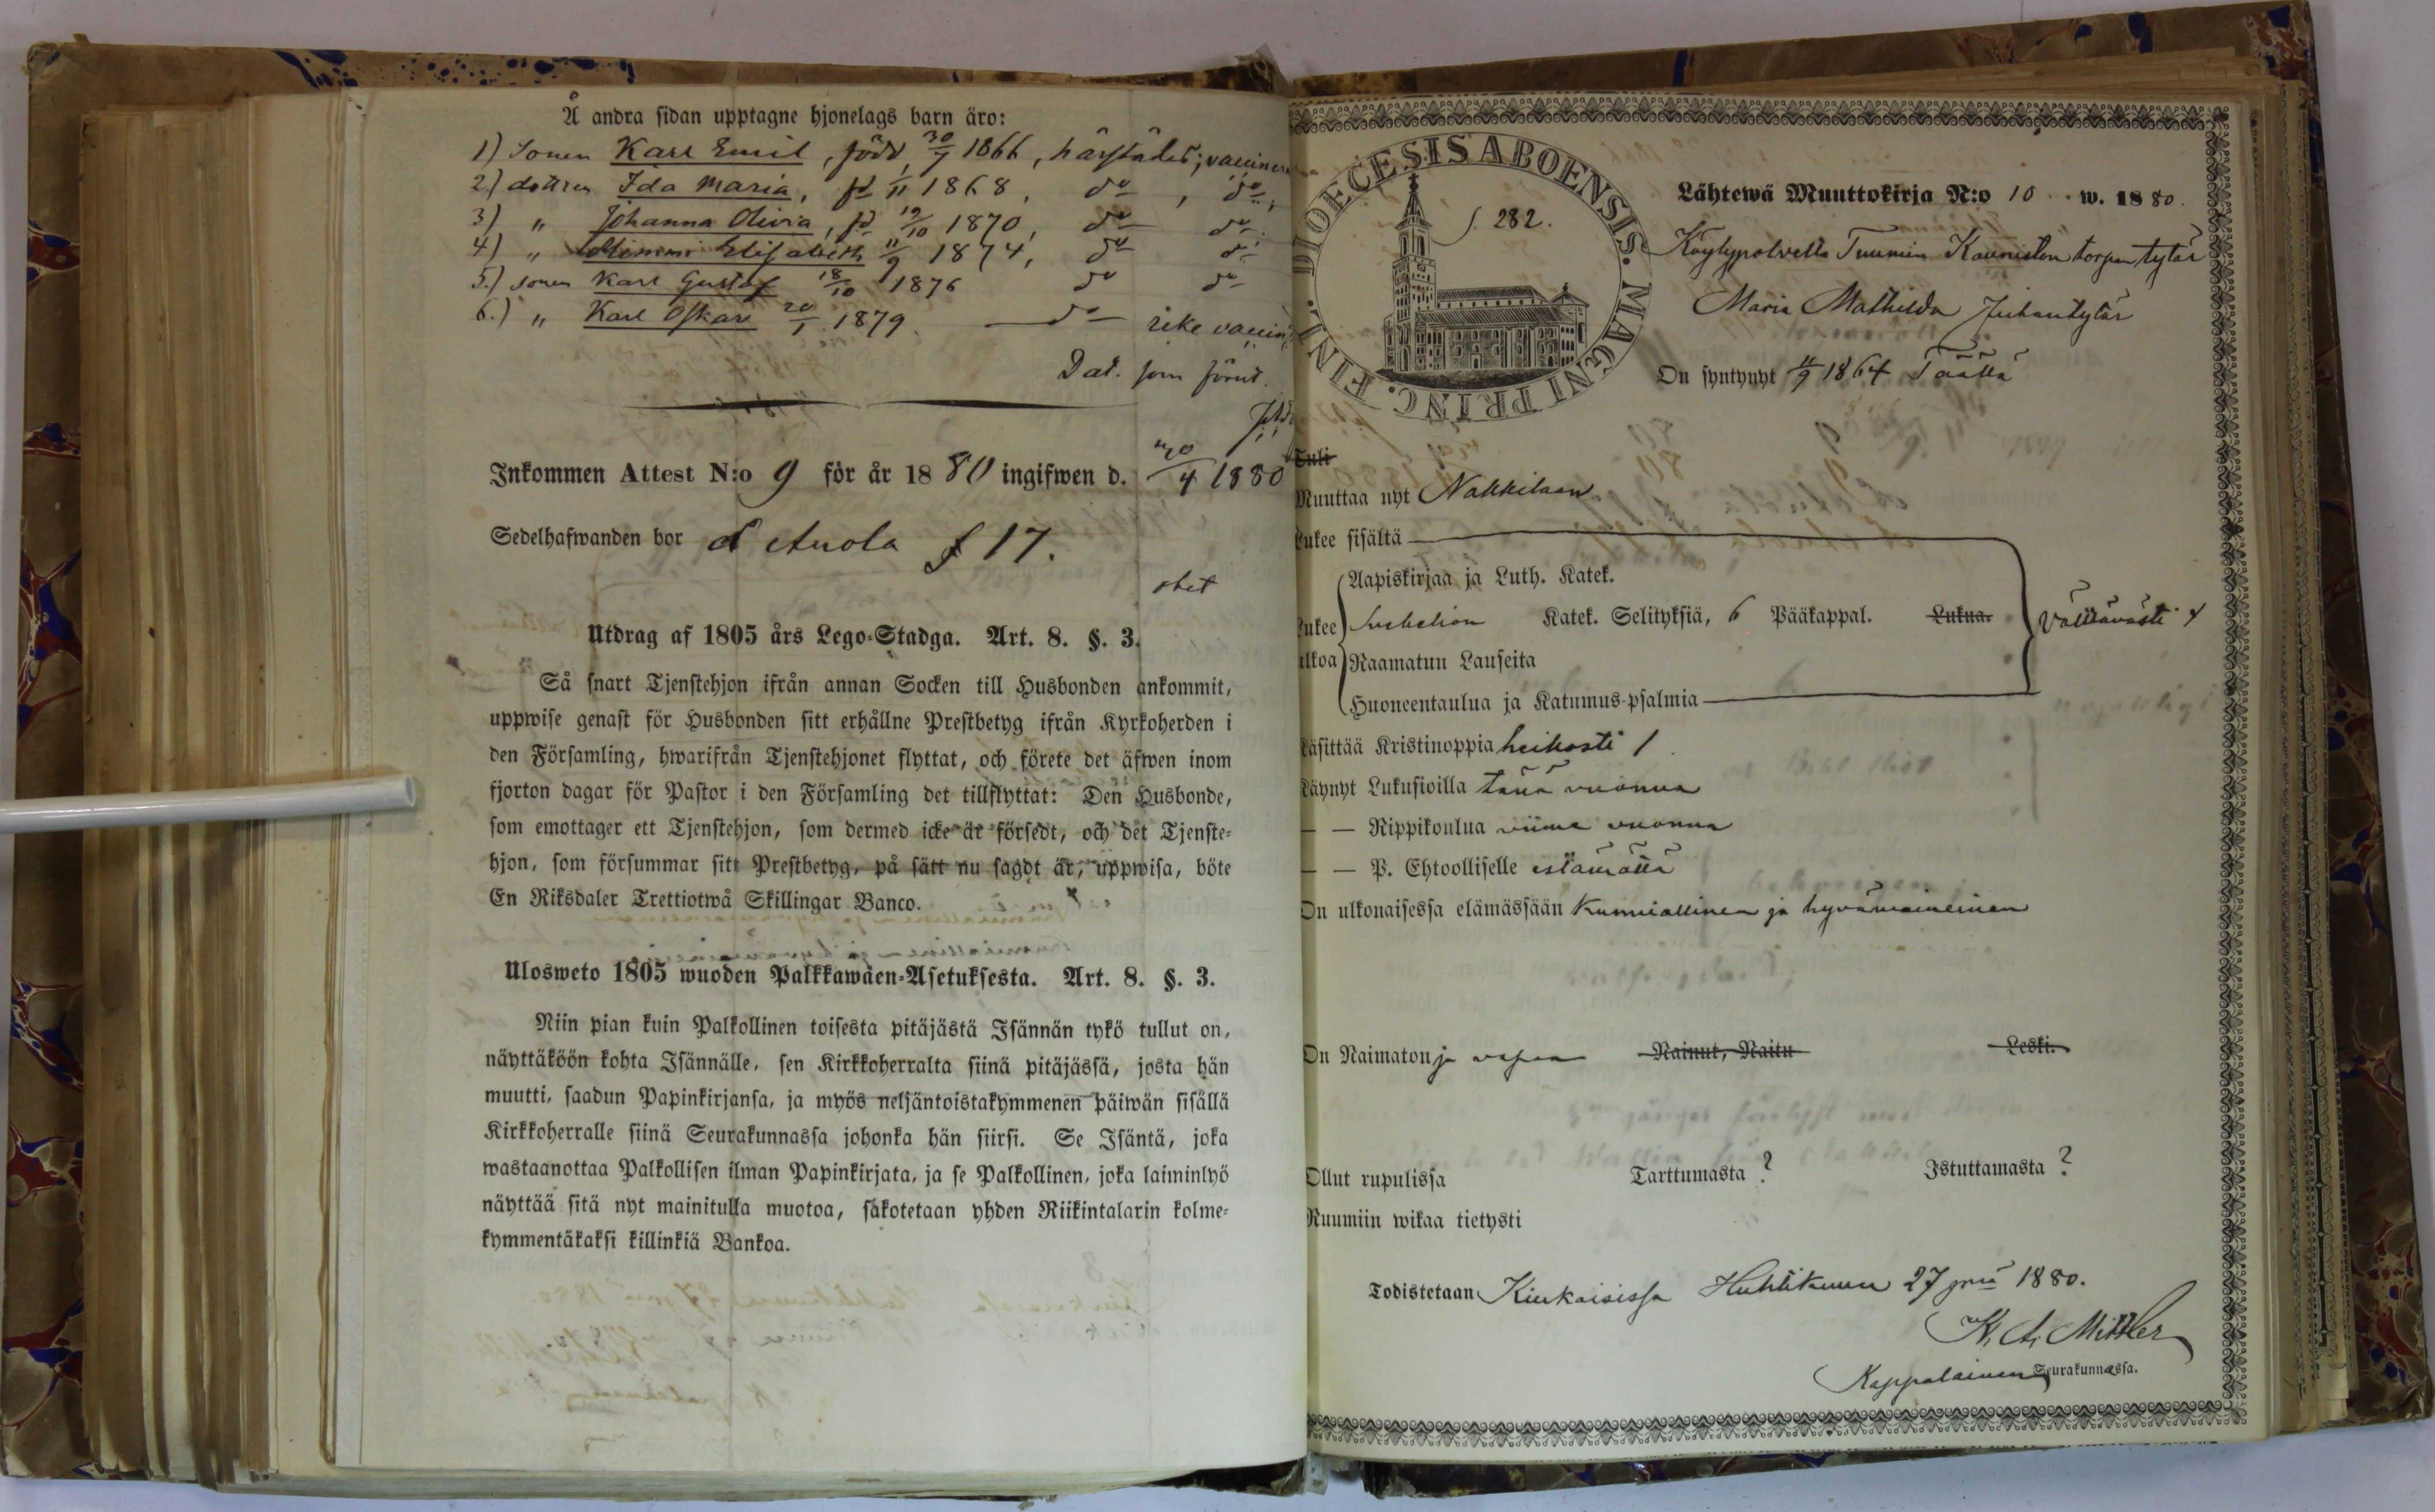 Å andra sidan upptagne hjonelags barn äro:
1) Sonen Karl Emil, född 30/7 1866, härstädes; vaccinera
2) dottren Ida Maria, fd 1/11 1868, do, do;
3) " Johanna Olivia, fd 19/10 1870, do do;
4) " Mimmi Elisabeth 11/9 1874, do do
5.) sonen Karl Gustaf 18/10 1876 do do
6.) " Karl Oskar 20/1 1879. do icke vaccin
Dat. som förut.
Inkommen Attest N:o 9 för år 1880 ingifwen d. 30/4 1880
Sedelhafwanden bor å Anola f 17.
Utdrag af 1805 års Lego-Stadga. Art. 8. §. 3.
Så snart Tjenstehjon ifrån annan Socken till Husbonden ankommit,
uppwise genast för Husbonden sitt erhållne Prestbetyg ifrån Kyrkoherden i
den Församling, hwarifrån Tjenstehjonet flyttat, och förete det äfwen inom
fjorton dagar för Pastor i den Församling det tillflyttat: Den Husbonde,
som emottager ett Tjenstehjon, som dermed icke är försedt, och det Tjenste-
hjon, som försummar sitt Prestbetyg, på sätt nu sagdt är, uppwisa, böte
En Riksdaler Trettiotwå Skillingar Banco.
Ulosweto 1805 wuoden Palkkawäen-Asetuksesta. Art. 8. §. 3.
Niin pian kuin Palkollinen toisesta pitäjästä Isännän tykö tullut on,
näyttäköön kohta Isännälle, sen Kirkkoherralta siinä pitäjässä, josta hän
muutti, saadun Papinkirjansa, ja myös neljäntoistakymmenen päiwän sisällä
Kirkkoherralle siinä Seurakunnassa johonka hän siirsi. Se Isäntä, joka
wastaanottaa Palkollisen ilman Papinkirjata, ja se Palkollinen, joka laiminlyö
näyttää sitä nyt mainitulla muotoa, sakotetaan yhden Riikintalarin kolme-
kymmentäkaksi killinkiä Bankoa.
DIOECESIS ABOENSIS. MAGNI PRINC. FINL.
f. 282.
Lähtewä Muuttokirja N:o 10 w. 1880.
Köylypolvelta Tuumin Kauniston torpan tytär
Maria Mathilda Juhantytär
On syntynyt 11/9 1864 Täällä
Tuli
Muuttaa nyt Nakkilaan
Lukee sisältä
Aapiskirjaa ja Luth. Katek.
Lukee ulkoa Svebelion Katek. Selityksiä, 6 Pääkappal. Lukua. Välttävästi
Raamatun Lauseita
Huoneentaulua ja Katumus-psalmia
Käsittää Kristinoppia heikosti 1
Käynyt Lukusioilla tänä vuonna
— — Rippikoulua viime vuonna
— — P. Ehtoolliselle estämättä
On ulkonaisessa elämässään Kunniallinen ja hyvämaineinen
On Naimaton ja vapaa Nainut, Naitu Leski.
Ollut rupulissa Tarttumasta ? Istuttamasta ?
Ruumiin wikaa tietysti
Todistetaan Kiukaisissa Huhtikuun 27 pnä 1880.
K. A. Mittler
Kappalainen Seurakunnassa.